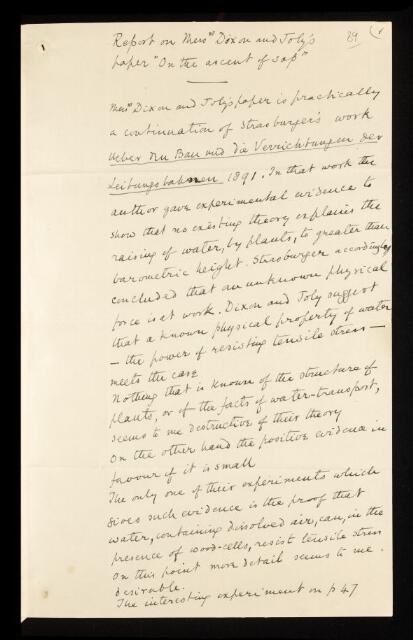 Report on Mess^rs Dixon and Joly's
89
paper "On the ascent of sap"
Mess^rs Dixon and Joly's paper is practically
a continuation of Strasburger's work
Ueber den Bau und die Verrichtungen der
Leitungsbahnen 1891. In that work the
author gave experimental evidence to
show that no existing theory explains the
raising of water, by plants, to greater than
barometric height. Strasburger accordingly
concluded that an unknown physical
force is at work. Dixon and Joly suggest
that a known physical property of water
— the power of resisting tensile stress —
meets the case
Nothing that is known of the structure of
plants, or of the facts of water-transport,
seems to me destructive of their theory
On the other hand the positive evidence in
favour of it is small
The only one of their experiments which
gives such evidence is the proof that
water, containing dissolved air, can, in the
presence of wood-cells, resist tensile stress
On this point more detail seems to me
desirable.
The interesting experiment on p 47